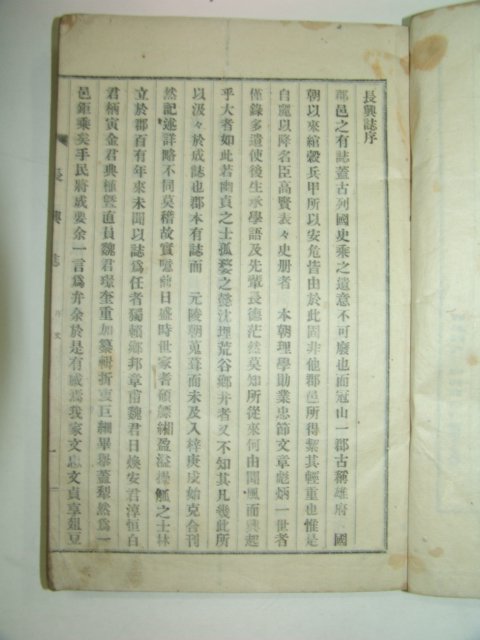 長興誌序
郡邑之有誌蓋古列國史乘之遺意不可廢也而冠山一郡古稱雄府 國
朝以來綰轂兵甲所以安危皆由於此固非他郡邑所得絜其輕重也惟是
自麗以降名臣高賢表々史册者 本朝理學勛業忠節文章彪炳一世者
僅錄多遺使後生承學語及先輩長德茫然莫知所從來何由聞風而興起
乎大者如此若幽貞之士孤嫠之懿沈埋荒谷鄕井者又不知其凡幾此所
以汲々於成誌也郡本有誌而 元陵朝蒐葺而未及入梓庚戌始克合刊
然記述詳略不同莫稽故實噫前日盛時世家耆碩縹緗盈溢操觚之士林
立於郡百有年來未聞以誌爲任者獨賴鄕邦章甫魏君日煥安君淳恒白
君柄寅金君典植曁直員魏君璟奎重加纂輯折衷巨細畢擧蓋犁然爲一
邑鉅乘矣手民將成要余一言爲弁余於是有感焉我家文忠文貞享俎豆
長興誌
序文
一